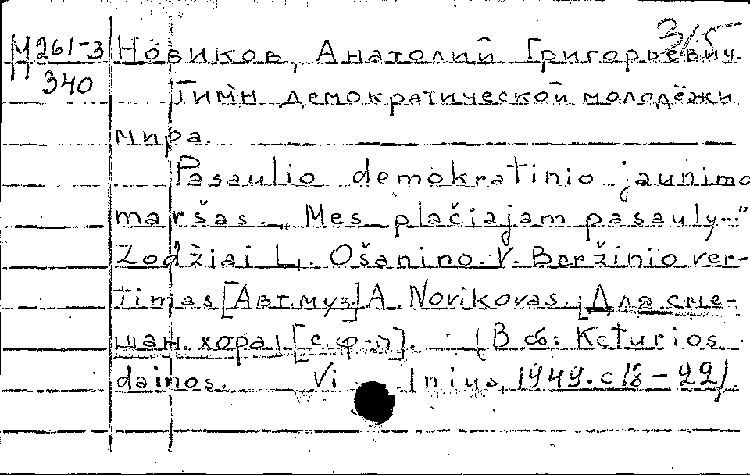 3/5
М 261-3 Новиков, Анатолий Григорьевич.
340
Гимн демократической молодёжи
мира.
Pasaulio demokratinio jaunimo
maršas. „Mes plačiajam pasauly..."
Žodžiai L. Ošanino. V. Beržinio ver-
timas [Авт. муз.] A. Novikovas. [Для сме-
шан. хора] [с ф-п]. (В сб: Keturios
dainos. Vilnius, 1949. с 18-22).